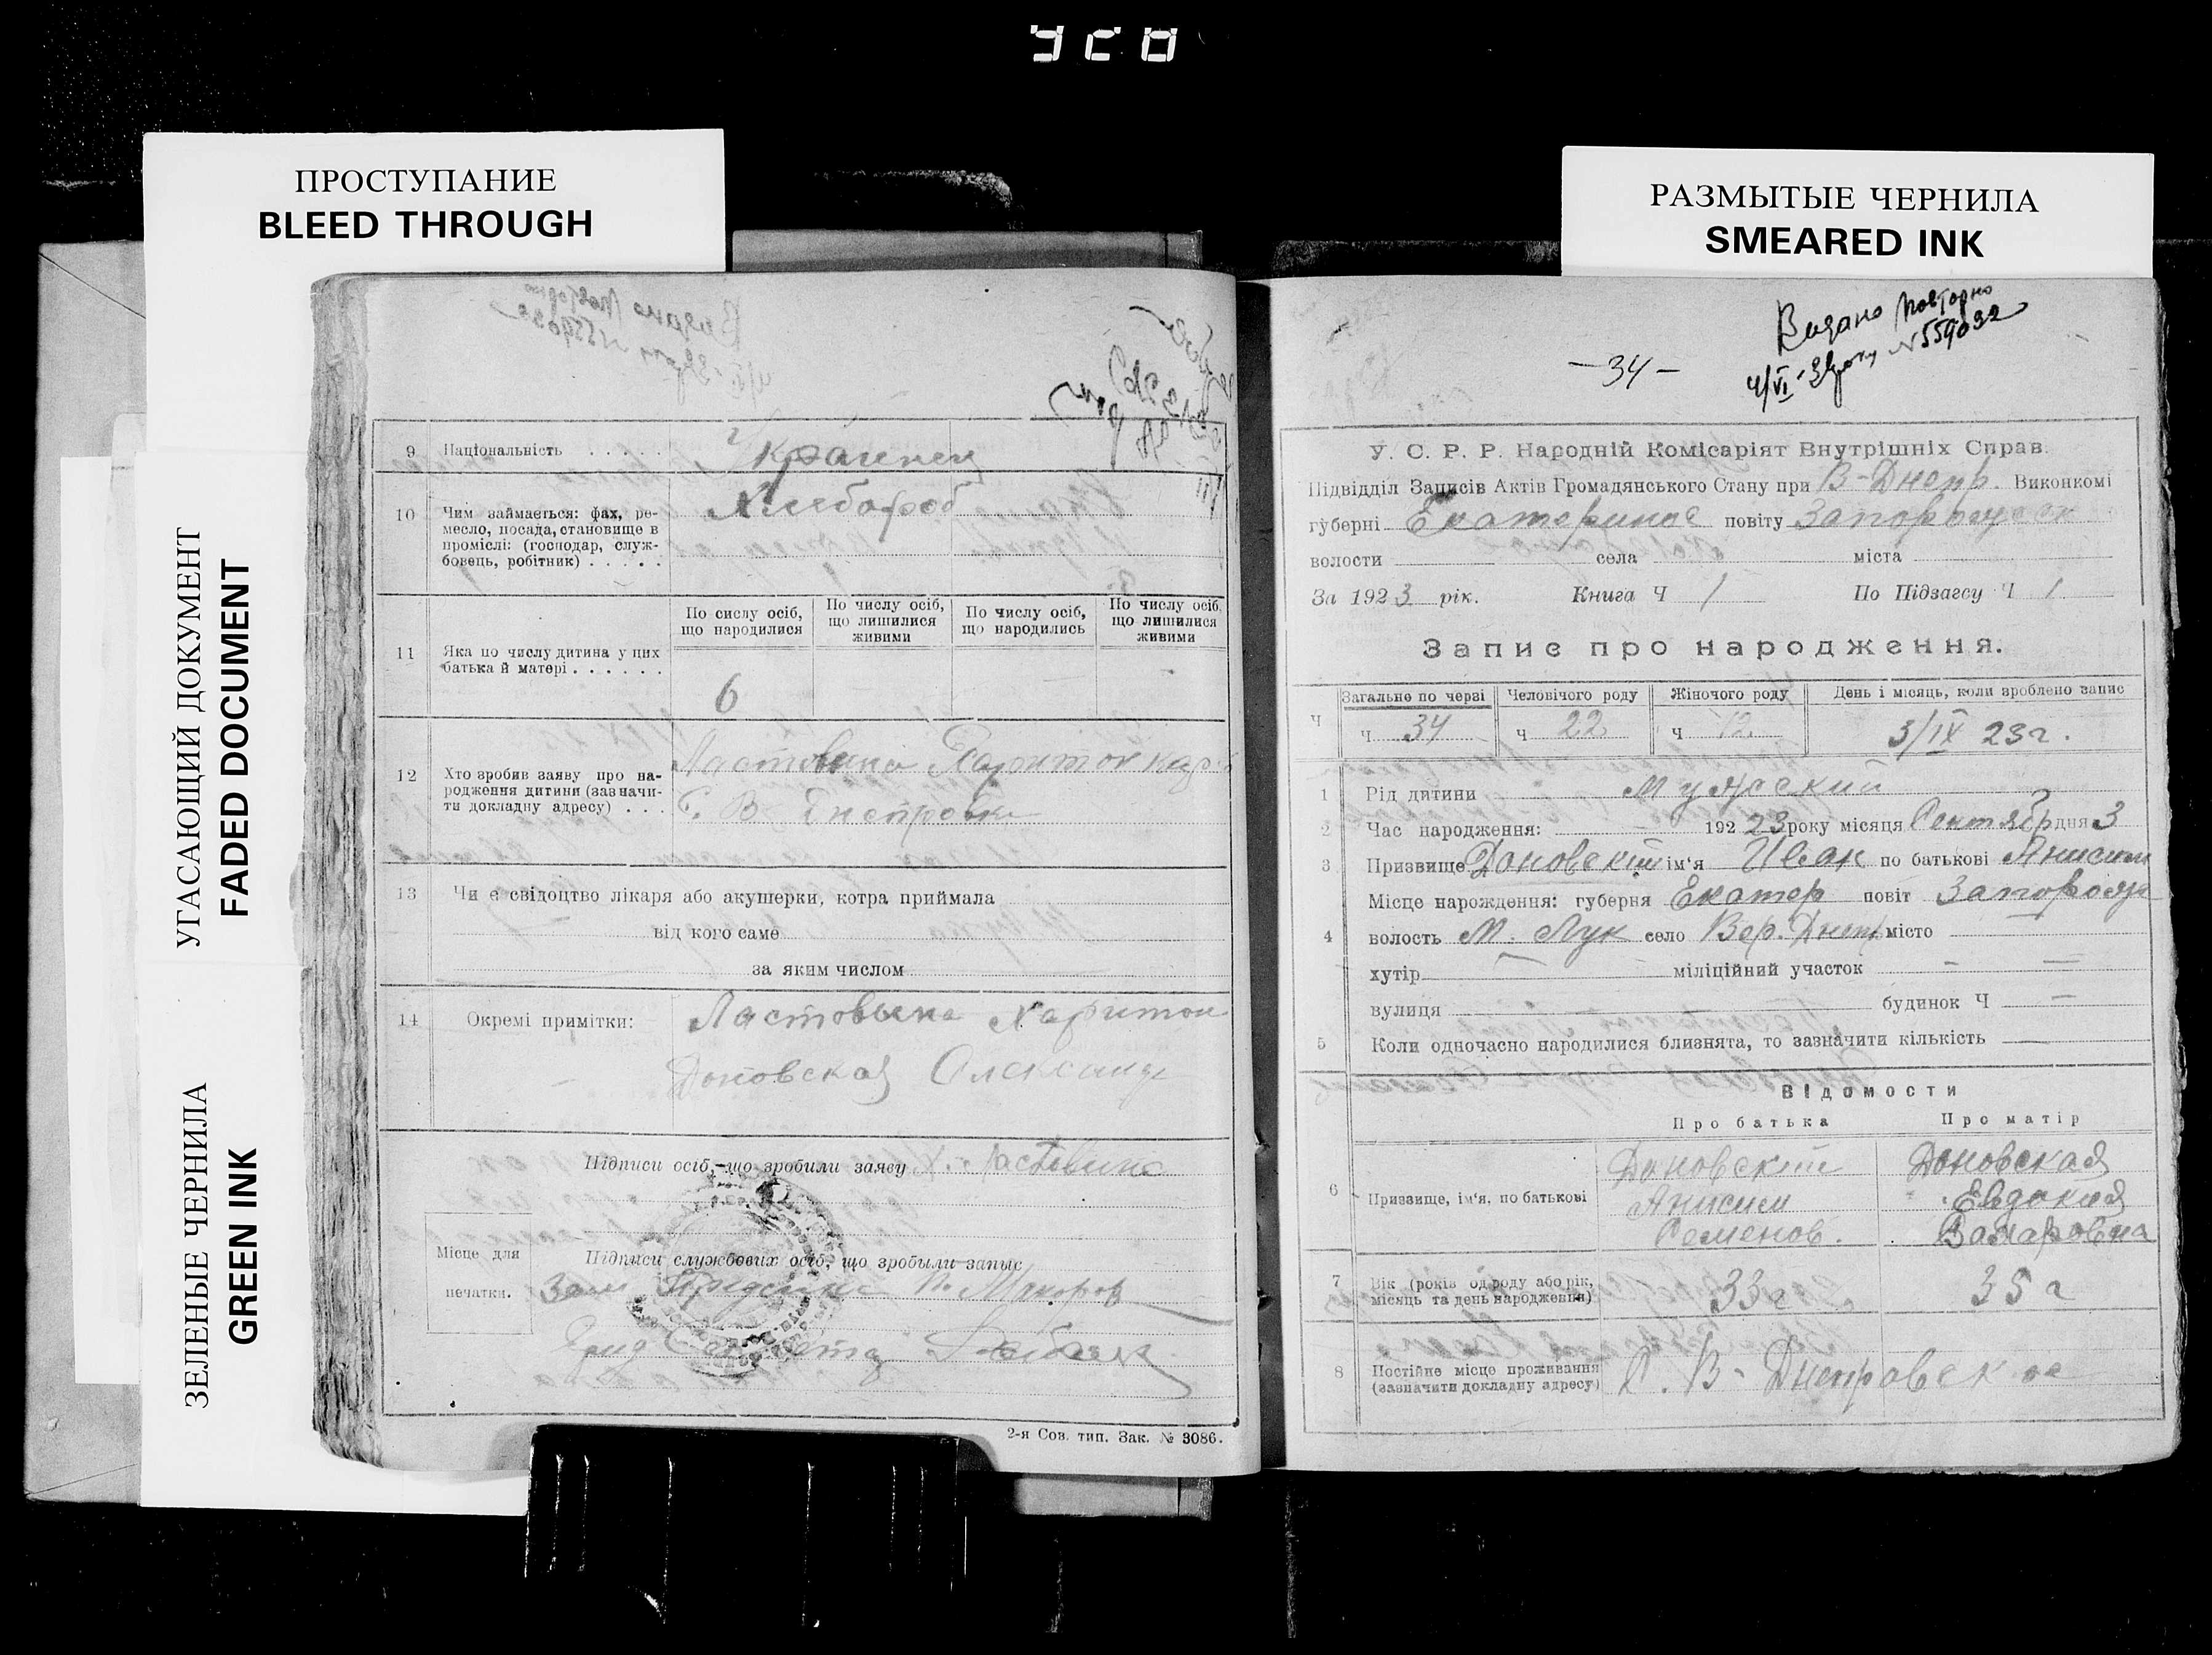 ПРОСТУПАНИЕ
BLEED THROUGH
УГАСАЮЩИЙ ДОКУМЕНТ
FADED DOCUMENT
ЗЕЛЕНЫЕ ЧЕРНИЛА
GREEN INK
9 Національність
Украинец
10 Чим займається: фах, ре-
месло, посада, становище в
проміслі: (господар, служ-
бовець, робітник)
Хлебороб
11 Яка по числу дитина у цих
батька й матері
По сислу осіб,
що народилися
По числу осіб,
що лишилися
живими
По числу осіб,
що народились
По числу осіб,
що лишилися
живими
6
12 Хто зробив заяву про на-
родження дитини (зазначи-
ти докладну адресу)
Ластовина Харитон
С. В-Днепровка
13 Чи є свідоцтво лікаря або акушерки, котра приймала
від кого саме
за яким числом
14 Окремі примітки:
Ластовина Харитон
Доновская Александ
Підписи осіб, що зробили заяву Х. Ластовина
Місце для
печатки.
Підписи службових осіб, що зробыли запыс
Зам Предс Макоров
2-я Сов. тип. Зак. № 3086.
РАЗМЫТЫЕ ЧЕРНИЛА
SMEARED INK
Видано повторно
4/VI- N 559032
— 34 —
У. С. Р. Р. Народній Комісаріят Внутрішніх Справ.
Підвідділ Записів Актів Громадянського Стану при В-Днепр. Виконкомі
губерні Екатеринос повіту Запорожск
волости села міста
За 1923 рік. Книга Ч 1 По Підзагсу Ч 1
Запис про народження.
Загальне по черзі Человічого роду Жіночого роду День і місяць, коли зроблено запис
Ч ч 34 ч 22 ч 12 3/IX 23 г.
1 Рід дитини Мужский
2 Час народження: 192 23 року місяця Сентябр дня 3
3 Призвище Доновский ім'я Иван по батькові Анисим
Місце нарождення: губерня Екатер повіт Запорож
4 волость М. Лук село Вер. Днепр місто —
хутір — міліційний участок — —
вулиця будинок Ч —
5 Коли одночасно народилися близнята, то зазначити кількість —
Відомости
Про батька Про матір
6 Призвище, ім'я, по батькові
Доновский
Анисим
Семенов.
Доновская
Евдокия
Захаровна
7 Вік (років од роду або рік,
місяць та день народження)
33 г 35 г
8 Постійне місце проживання
(зазначити докладну адресу)
С. В- Днепровское